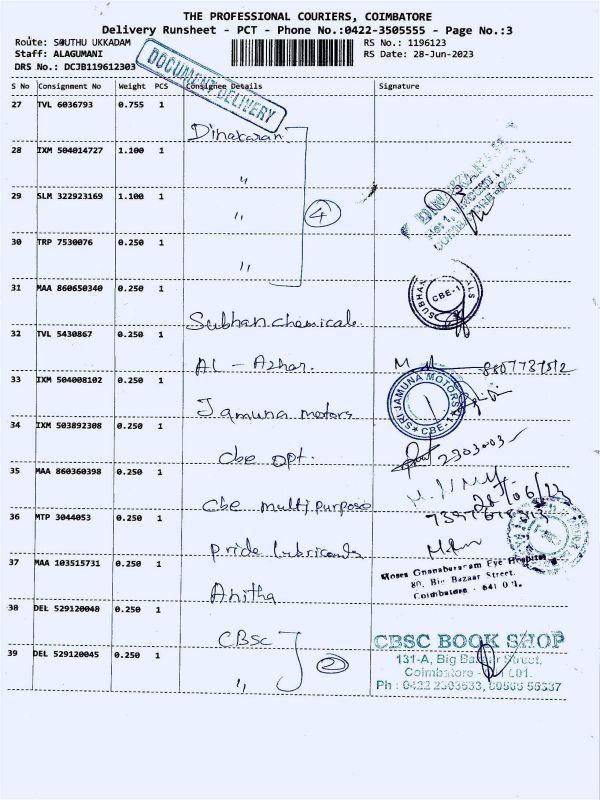 THE PROFESSIONAL COURIERS, COIMBATORE
Delivery Runsheet - PCT - Phone No.:0422-3505555 - Page No.:3
Route: SOUTHU UKKADAM RS No.: 1196123
Staff: ALAGUMANI RS Date: 28-Jun-2023
DRS No.: DCJB119612303
DOCUMENT DELIVERY
S No Consignment No Weight PCS Consignee Details Signature
27 TVL 6036793 0.755 1 Dinakaran
28 IXM 504014727 1.100 1 "
29 SLM 322923169 1.100 1 " 4
30 TRP 7530076 0.250 1 "
31 MAA 860650340 0.250 1 Subhan chemicals
SUBHAN CBE-1
32 TVL 5430867 0.250 1 AL - Azhar.
33 IXM 504008102 0.250 1 Jamuna motors
SRI JAMUNA MOTORS CBE-1
34 IXM 503892308 0.250 1 Cbe opt.
35 MAA 860360398 0.250 1 Cbe multi purpose
28/06/23
36 MTP 3044053 0.250 1 Pride lubricants
37 MAA 103515731 0.250 1 Anitha
Moses Gnanabaranam Eye Hospital
80, Big Bazaar Street,
Coimbatore - 641 0
38 DEL 529120048 0.250 1 CBSC
39 DEL 529120045 0.250 1 " 2
CBSC BOOK SHOP
131-A, Big Bazaar Street,
Coimbatore - 001.
Ph : 0422